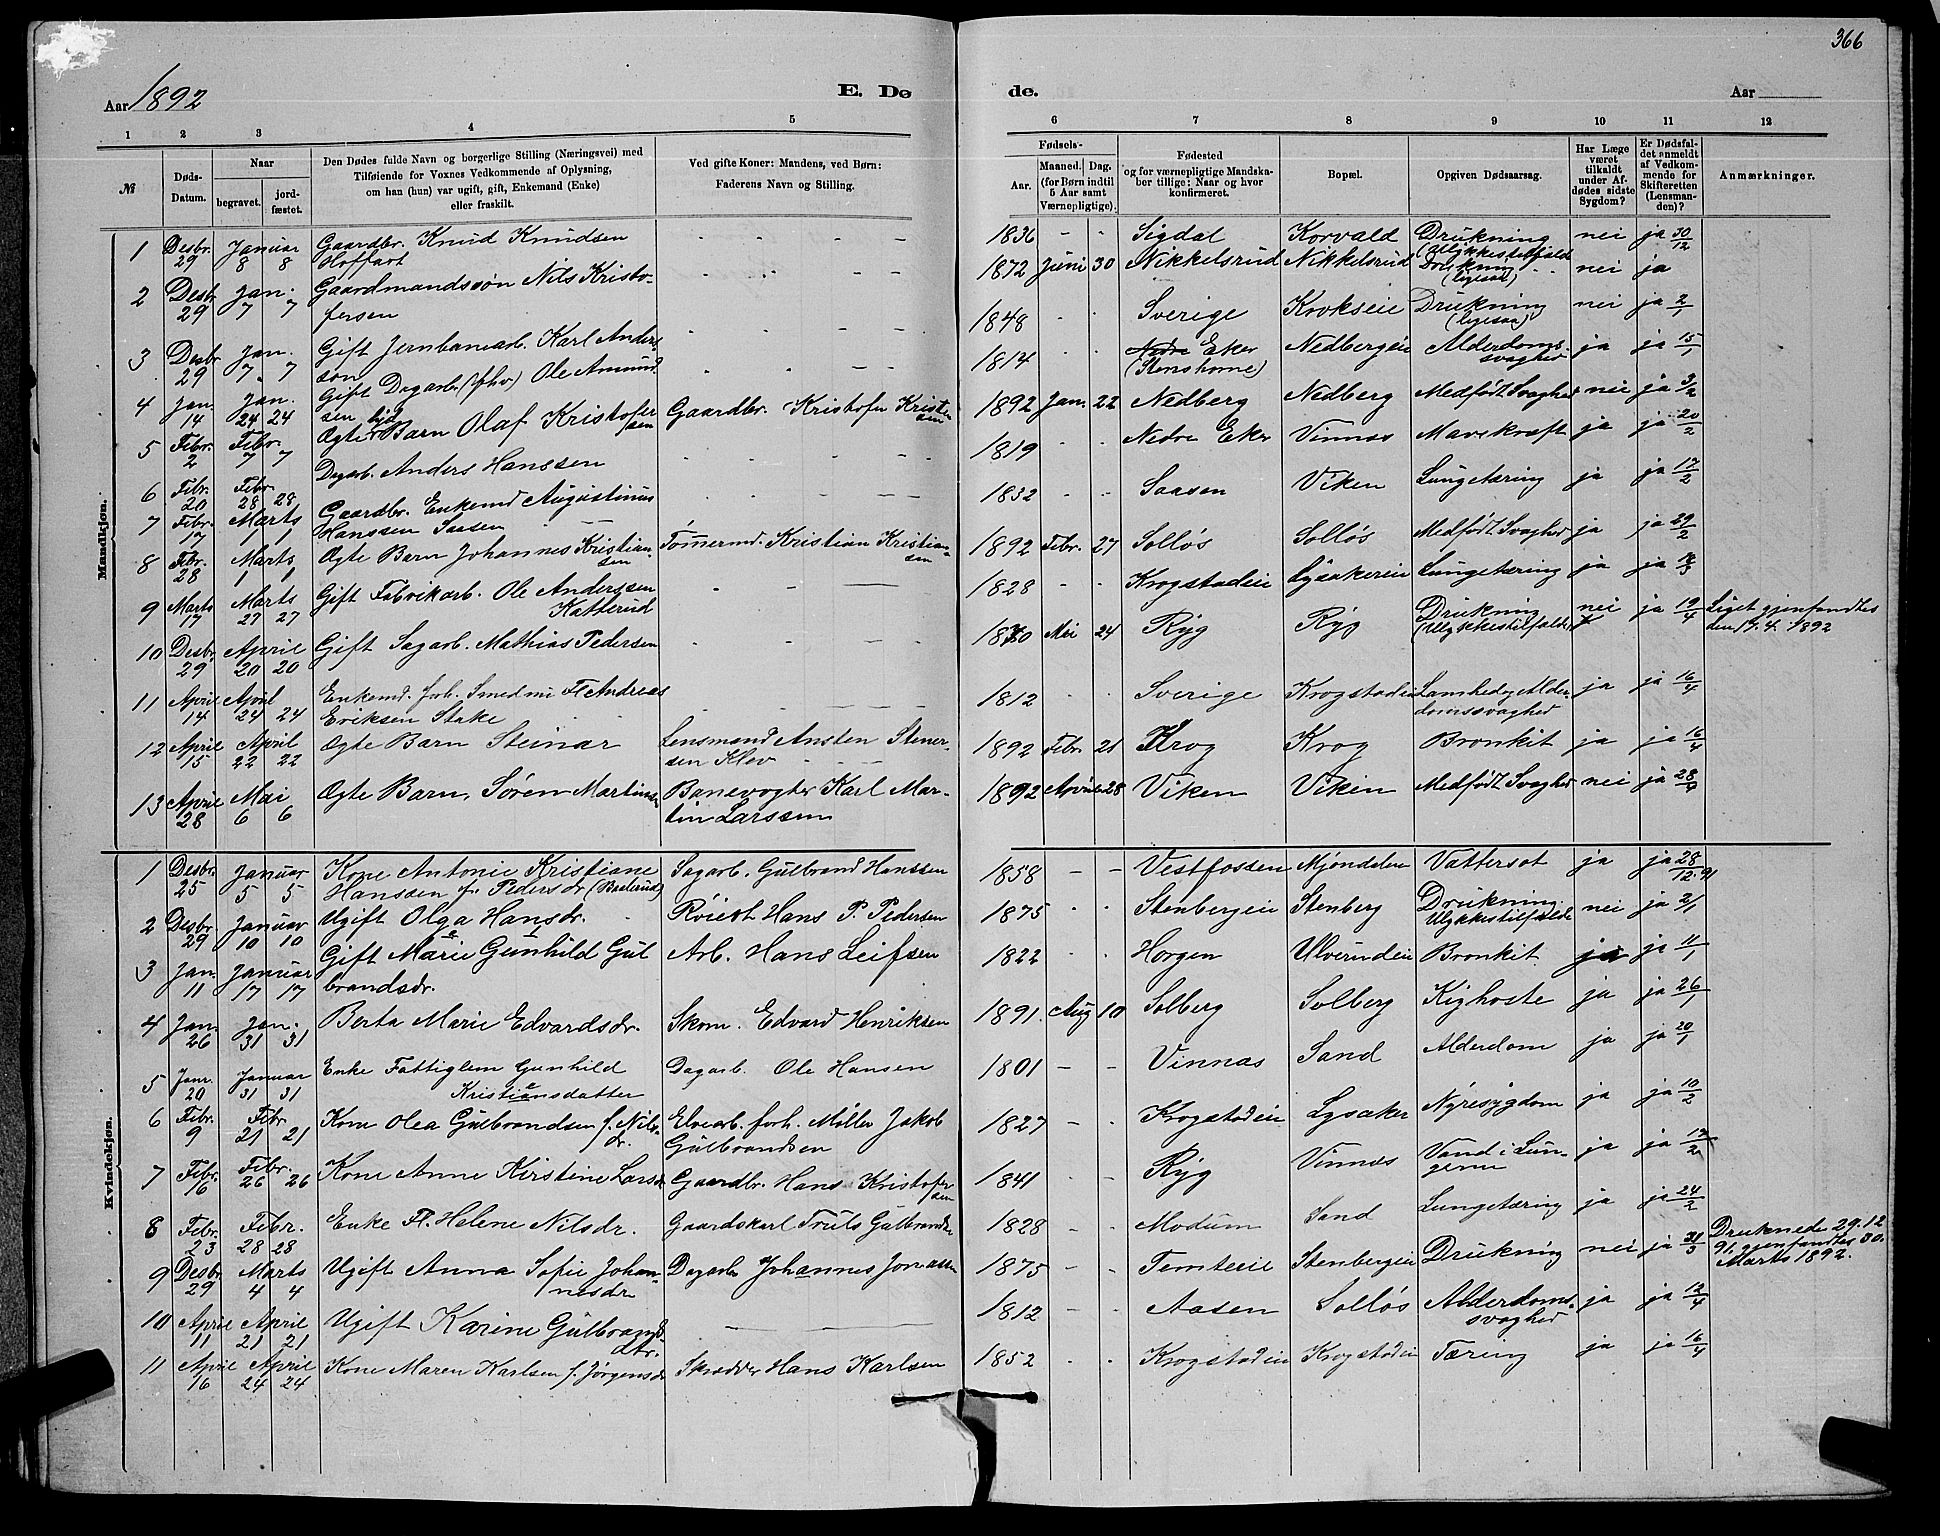 366
Aar 1892
E. Dø
de.
Aar
1 2 3 4 5 6 7 8 9 10 11 12
№
Døds-Datum.
Naar
begravet.
jord-fæstet.
Den Dødes fulde Navn og borgerlige Stilling (Næringsvei) med
Tilføiende for Voxnes Vedkommende af Oplysning,
om han (hun) var ugift, gift, Enkemand (Enke)
eller fraskilt.
Ved gifte Koner: Mandens, ved Børn:
Faderens Navn og Stilling.
Fødsels-
Aar.
Maaned. Dag.
(for Børn indtil
5 Aar samt
Værnepligtige).
Fødested
og for værnepligtige Mandska-
ber tillige: Naar og hvor
konfirmeret.
Bopæl.
Opgiven Dødsaarsag.
Har Læge
været
tilkaldt
under Af-
dødes sidste
Sygdom?
Er Dødsfal-
det anmeldt
af Vedkom-
mende for
Skifteretten
(Lensman-
den)?
Anmærkninger.
Mandkjøn.
1 Desbr. 29 Januar 8 8 Gaardbr. Knud Knudsen Hoffart 1836 Sigdal Korvald Drukning (Ulykkestilfælde) nei ja 30/12
2 Desbr 29 Jan. 7 7 Gaardmandssøn Nils Kristo-fersen 1872 Juni 30 Nikkelsrud Nikkelsrud Drukning (ligesaa) nei ja
3 Desbr 29 Jan. 7 7 Gift Jernbanearb. Karl Anders son 1848 Sverige Krokseie Drukning (ligesaa) nei ja 2/1
4 Jan. 14 Jan. 24 24 Gift Dagarb. (fhv) Ole Amund sen 1814 Nedre Eker (Stenshorne) Nedbergeie Alderdoms-svaghed ja ja 15/1
Ægte Barn Olaf Kristofersen Gaardbr. Kristofer Kristensen 1892 Jan. 22 Nedberg Nedberg Medfødt Svaghed nei ja 3/2
5 Febr. 2 Febr. 7 7
Dagarb. Anders Hanssen 1819 Nedre Eker Vinnas Mavekræft ja ja 20/2
6 Febr. 20 Febr. 28 28
7 Febr. 17 Marts 1 1 Gaardbr. Enkemd Augustinus Hanssen Saasen 1832 Saasen Viken Lungetæring ja ja 17/2
8 Febr. 28 Marts 1 1 Ægte Barn Johannes Kristiansen Tømermd. Kristian Kristiansen 1892 Febr. 27 Solløs Solløs Medfødt Svaghed ja ja 29/2
9 Marts 17 Marts 27 27 Gift Fabrikarb. Ole Anderssen Katterud 1828 Krogstadeie Lysakereie Lungetæring ja ja
10 Desbr. 29 April 20 20 Gift Sagarb. Mathias Pedersen 1870 Mai 24 Ryg Ryg Drukning (Ulykkestilfælde) nei ja 19/4 Liget gjenfandtes den 17. 4. 1892
11 April 14 April 24 24 Enkemd. forh. Smed Fl Andreas Eriksen Stake 1812 Sverige Krogstadeie Lamhed og Alder-domssvaghed ja ja 16/4
12 April 15 April 22 22 Ægte Barn Steinar Lensmand Ansten Stener-sen Klev 1892 Febr. 21 Krog Krog Bronkit ja ja 16/4
13 April 28 Mai 6 6 Ægte Barn, Søren Martinsen Banevogter Karl Mar-tin Larssen 1892 April 28 Viken Viken Medfødt Svaghed nei ja 28/4
Kvindekjøn.
1 Desbr. 25 Januar 5 5 Kone Antonie Kristiane Hanssen f. Pedersdr Sagarb. Gulbrand Hanssen 1858 Vestfossen Mjøndalen Vattersot ja ja 28/12 91
2 Desbr 29 Januar 10 10 Ugift Olga Hansdr. Hans P. Pedersen 1875 Stenbergeie Stenberg Drukning. Ulykkestilfælde nei ja 2/1
3 Jan. 11 Januar 17 17 Gift Marie Gunhild Gul brandsdr. Arb. Hans Leifsen 1822 Horgen Ulverudeie Bronkit. ja ja 11/1
4 Jan. 26 Jan. 31 31 Berta Marie Edvardsdr. Skom. Edvard Henriksen 1891 Aug 10 Solberg Solberg Kighoste ja ja 26/1
5 Janr. 20 Januar 31 31 Enke Fattiglem Gunhild Kristiansdatter Dagarb. Ole Hansen 1801 Vinnas Sand Alderdom ja ja 20/1
6 Febr. 9 Febr 21 21 Kone Olea Gulbrandsen f. Nilsdr. Elvearb. forh. Møller Jakob Gulbrandsen 1827 Krogstadeie Lysaker Nyresygdom ja ja 10/2
7 Febr. 16 Febr. 26 26 Kone Anne Kirstine Larsdr Gaardbr. Hans Kristofersen 1841 Ryg Vinnas Vand i Lun-gerne ja ja 17/2
8 Febr. 23 Febr. 28 28 Enke Fl. Helene Nilsdr. Gaardskarl Truls Gulbrands 1828 Modum Sand Lungetæring ja ja 24/2
9 Desbr 29 Marts 4 4 Ugift Anna Sofie Johan-nesdr Dagarb Johannes Jonassen 1875 Temteeie Stenbergeie Drukning nei ja Druknede 29.12 91. gjenfandtes 30. Marts 1892.
10 April 11 April 21 21 Ugift Karine Gulbrands dtr. 1812 Aasen Solløs Alderdoms-svaghed ja ja 12/4
11 April 16 April 24 24 Kone Maren Karlsen f. Jørgensdr Skrædder Hans Karlsen 1852 Krogstadeie Krogstadeie Tæring ja ja 16/4